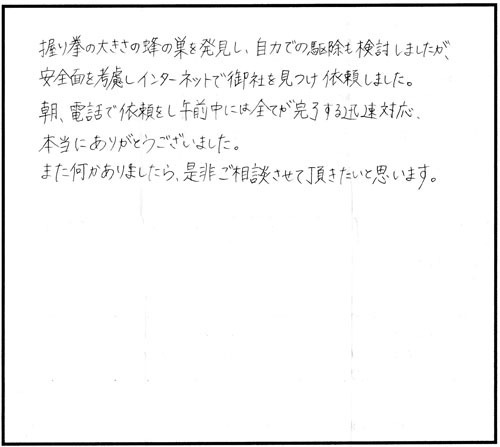 握り拳の大きさの蜂の巣を発見し、自力での駆除も検討しましたが、
安全面を考慮しインターネットで御社を見つけ依頼しました。
朝、電話で依頼をし午前中には全てが完了する迅速対応、
本当にありがとうございました。
また何かありましたら、是非ご相談させて頂きたいと思います。